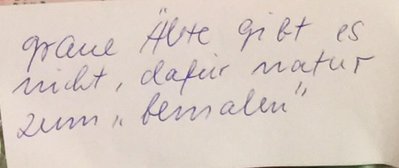 graue Äste gibt es
nicht, dafür natur
zum „bemalen"